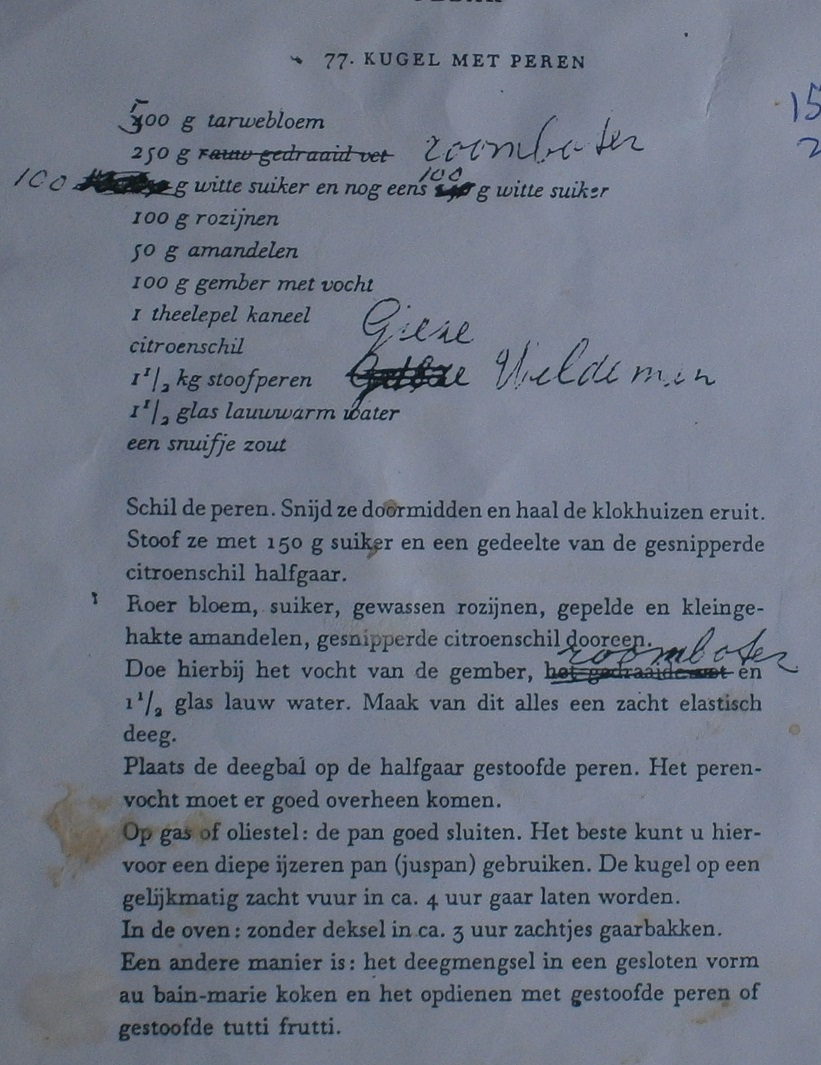 77. KUGEL MET PEREN
500 g tarwebloem
250 g rauw gedraaid vet roomboter
100 g witte suiker en nog eens 100 g witte suiker
100 g rozijnen
50 g amandelen
100 g gember met vocht
1 theelepel kaneel
citroenschil
1 1/2 kg stoofperen Giese Wildeman
1 1/2 glas lauwwarm water
een snuifje zout
Schil de peren. Snijd ze doormidden en haal de klokhuizen eruit.
Stoof ze met 150 g suiker en een gedeelte van de gesnipperde
citroenschil halfgaar.
Roer bloem, suiker, gewassen rozijnen, gepelde en kleinge-
hakte amandelen, gesnipperde citroenschil dooreen.
roomboter
Doe hierbij het vocht van de gember, het gedraaide vet en
1 1/2 glas lauw water. Maak van dit alles een zacht elastisch
deeg.
Plaats de deegbal op de halfgaar gestoofde peren. Het peren-
vocht moet er goed overheen komen.
Op gas of oliestel: de pan goed sluiten. Het beste kunt u hier-
voor een diepe ijzeren pan (juspan) gebruiken. De kugel op een
gelijkmatig zacht vuur in ca. 4 uur gaar laten worden.
In de oven: zonder deksel in ca. 3 uur zachtjes gaarbakken.
Een andere manier is: het deegmengsel in een gesloten vorm
au bain-marie koken en het opdienen met gestoofde peren of
gestoofde tutti frutti.